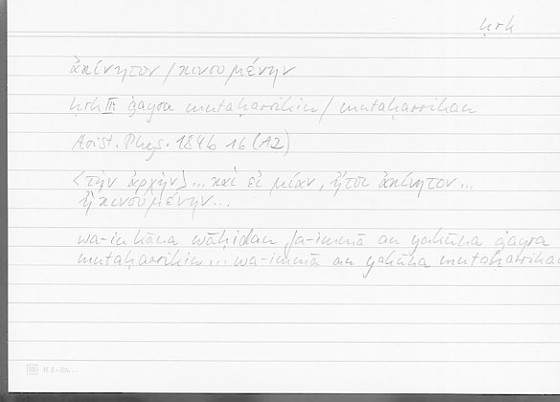 ḥrk
ἀκίνητον / κινουμένην
ḥrk III: ġayra mutaḥarrikin / mutaḥarrikan
Arist. Phys. 184b 16 (A2)
<τὴν ἀρχήν> ... καὶ εἰ μίαν, ἤτοι ἀκίνητον ...
ἢ κινουμένην ...
wa-in kāna wāḥidan fa-immā an yakūna ġayra
mutaḥarrikin ... wa-immā an yakūna mutaḥarrikan